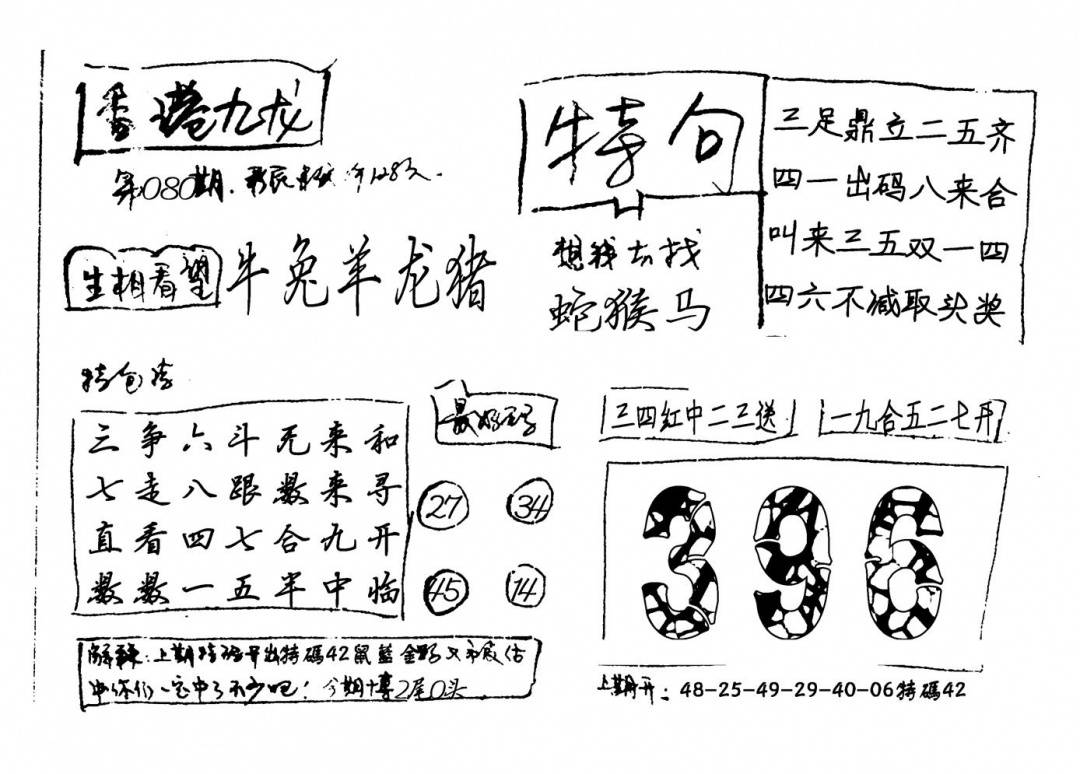 香港九龙
第080期.
生相看望
牛兔羊龙猪
特句
想钱去找
蛇猴马
三足鼎立二五齐
四一出码八来合
叫来三五双一四
四六不减取头奖
特包
三争六斗无来和
七走八跟数来寻
直看四七合九开
数数一五半中临
最好码
27 34
45 14
三四红中二三送
一九合五二七开
396
解释:上期特码开出特碼42鼠蓝
今期博2尾0头
上期开:48-25-49-29-40-06特碼42